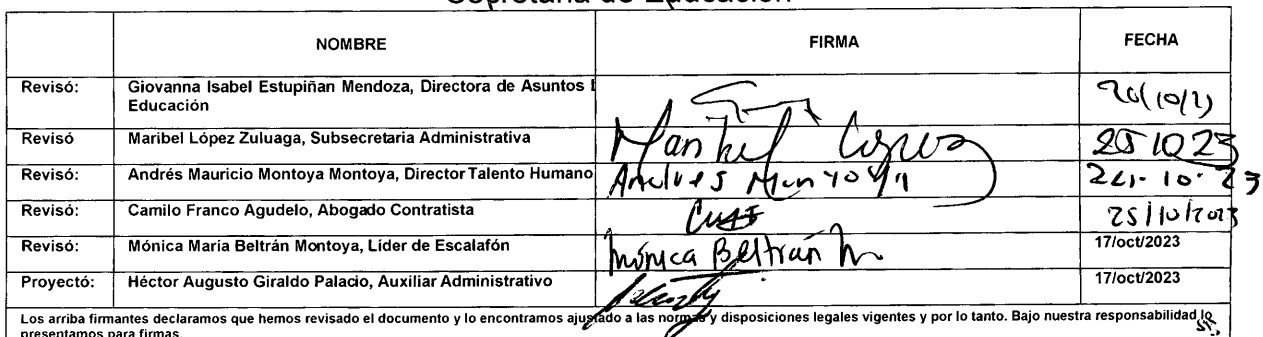 Secretaría de Educación
NOMBRE FIRMA FECHA
Revisó: Giovanna Isabel Estupiñan Mendoza, Directora de Asuntos
Educación
Revisó Maribel López Zuluaga, Subsecretaria Administrativa Maribel López 25 10 23
Revisó: Andrés Mauricio Montoya Montoya, Director Talento Humano Andres Montoya
Revisó: Camilo Franco Agudelo, Abogado Contratista 25/10/2023
Revisó: Mónica María Beltrán Montoya, Líder de Escalafón Mónica Beltrán M. 17/oct/2023
Proyectó: Héctor Augusto Giraldo Palacio, Auxiliar Administrativo 17/oct/2023
Los arriba firmantes declaramos que hemos revisado el documento y lo encontramos ajustado a las normas y disposiciones legales vigentes y por lo tanto. Bajo nuestra responsabilidad lo
presentamos para firmas.